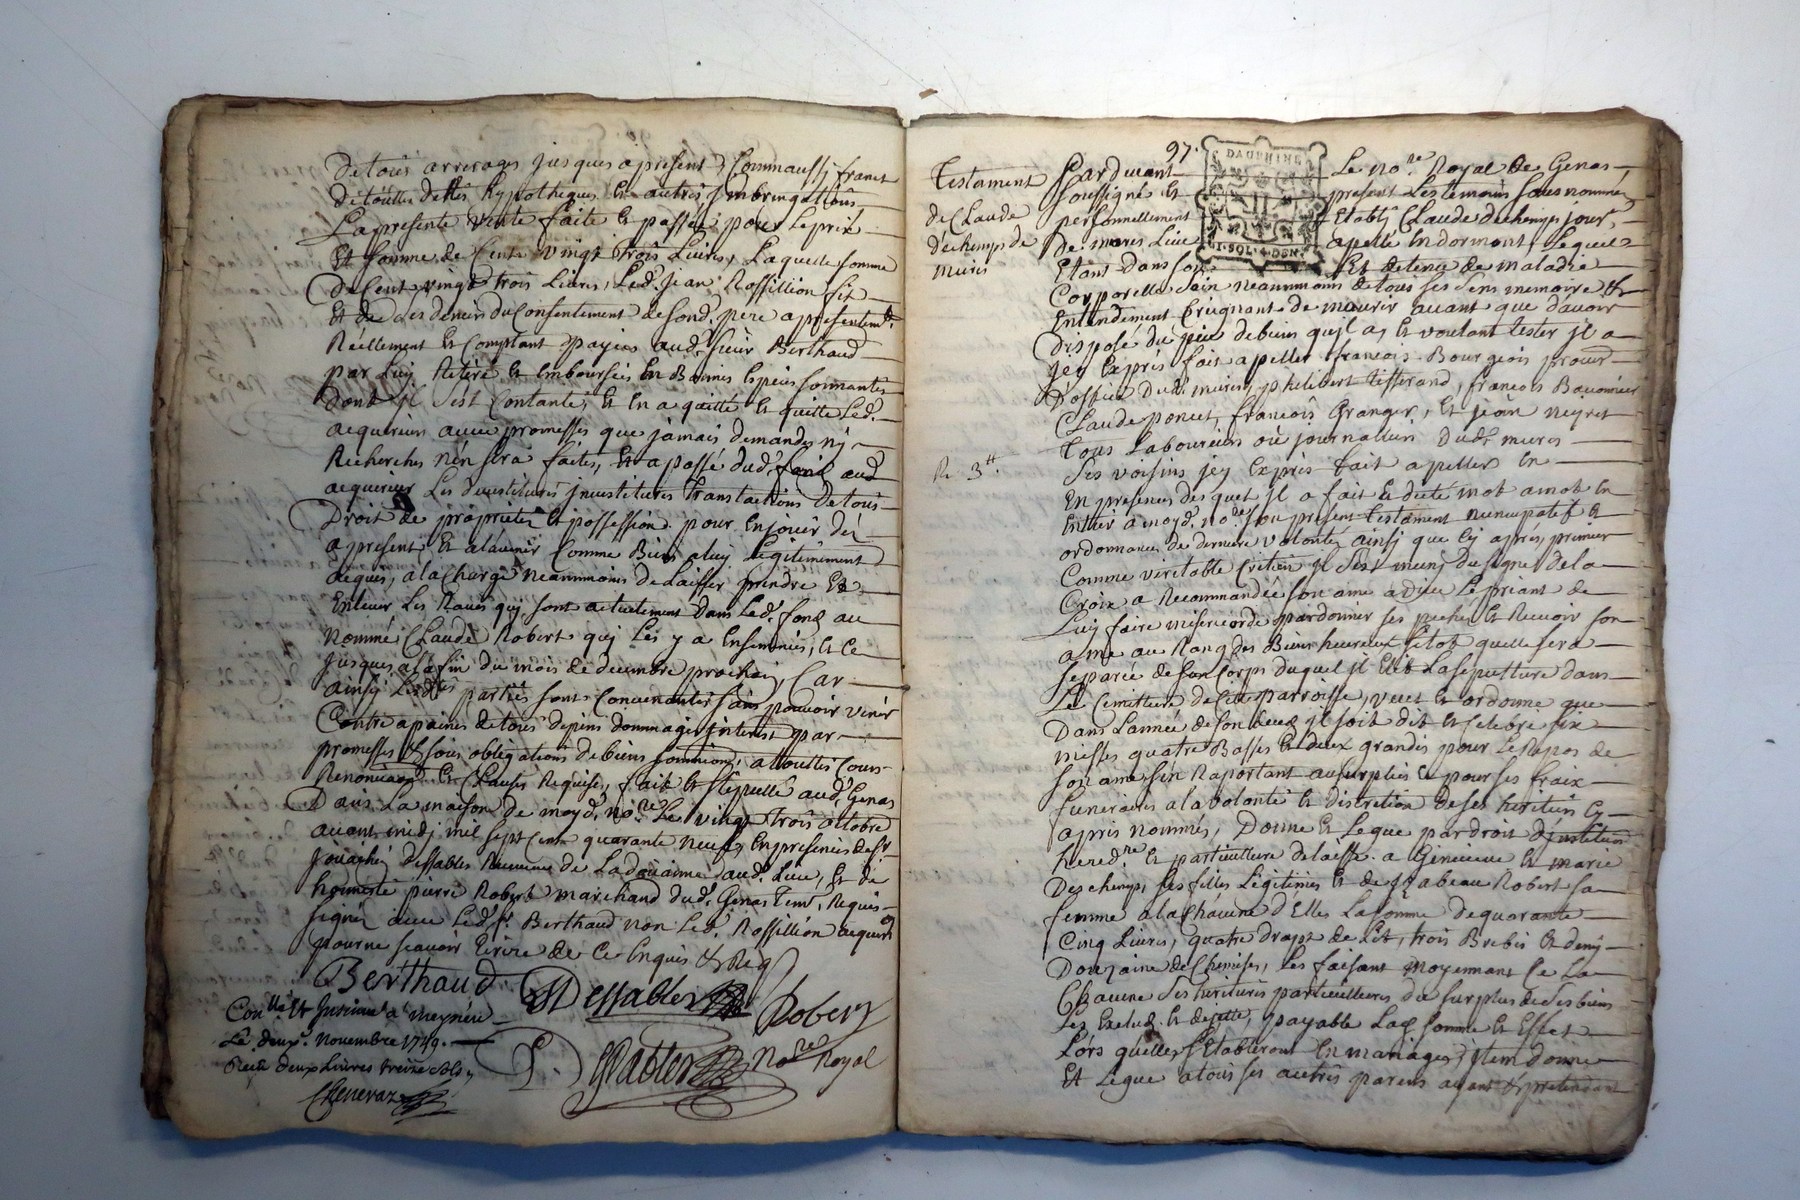 De tous arrerages jusques apresent, Comm'aussy franct
De touttes dettes hypotheques et autres Imbringations
La presente vente faite et passée pour le prix
Et somme de Cent vingt trois Livres, Laquelle somme
De Cent vingt trois Livres, Led. Jean Rossillion fit
Et de ses deniers du Consentement de sond. pere apresentemt.
Reellement et Comptant payées aud. sieur Berthaud
par Luy Retiré et Emboursées En Bonnes Espèces sonnantes
dont jl s'est Contanté, Et En a quitté et quitte Led.
acquereur avec promesses que jamais demandes ny
Recherches n'en sera faites, Et a passé dud. fond aud
acquereur Les devestitures jnvestitures translactions De tous
Droit de proprieté et possession pour En jouir dès
apresent Et alavenir Comme Biens aluy Legitimement
acquis, ala charge neanmmoins de Laisser prendre Et
Enlever Les Raves quj sont actuelement dans Led. fond au
nommé Claude Robert quj Les y a Ensemencés, et Ce
jusques ala fin du mois de decembre prochain, Car
ainsy Lesd. parties sont Convenantes sans pouvoir venir
Contre apaines de tous depens dommages jnterest par
promesses et sous obligations de biens soumissions, a touttes Cours
Renonciaons et Clauses Requises, fait et stipullé aud. Genas
Dans La maison de moyd. nore. Le vingt trois octobre
avant midj mil sept Cent quarante neuf, En presences de sr
Joachin dessables Receveur de La doüanne aud. Lieu, Et de
honneste pierre Robert marchand dud. Genas Temt. Requis
signés avec Led. sr. Berthaud non Led. Rossillion acquereur
pour ne sçavoir Ecrire de Ce Enquis & Req
Berthaud Dessables Robert
Conlle. Et Insinué a Meyzieu
Le deuxe. Novembre 1749.
Reçu deux Livres treize sols
Chenevaz
Dessables Nore Royal
97.
DAUPHINE
1·SOL·4·DEN
Testament
de Claude
dechemps de
mures
Re 3tt.
Pardevant Le nore. Royal de Genas
soussigné Et present Les temoins sous nommés
personnellement Etablj Claude dechemps jour.
De mures Lieu apellé En dormont, Lequel
Etant dans son Et detenu de maladie
Corporelle, sain neanmmoins de tous ses sens memoire &
Entendement Creignant de mourir avant que d'avoir
disposé du peu de biens qujl a, Et voulant tester jl a
jcy Exprés fait apeller francois Bourgeois procur
D'office dud. mures, philibert tisserand, francois Bavonnier
Claude poncet, francois Granger, Et jean neyret
Tous Laboureurs où journalliers dud. mures
ses voisins jcy Exprés fait apeller En
En presences desquel jl a fait Et dicté mot a mot En
Entier a moyd. nore son present testament nuncupatif Et
ordonnance de derniere volonté ainsj que Cy aprés, primier
Comme veritable Cretien jl s'est munj du signe de La
Croix a Recommandée son ame a Dieu Le priant de
Luy faire misericorde pardonner ses pechés Et Recevoir son
ame au Rang des Bienheureux sitot quelle sera
separée de son Corps duquel jl Elit La sepulture dans
Le Cimittiere de Cette parroisse, veut Et ordonne que
Dans L'année de son decés jl soit dit Et Celebré six
messes quatre Basses Et deux grandes pour Le Repos de
son ame s'en Raportant au surplus Ce pour ses fraix
funeraires ala volonté Et discretion de ses heritiers Cy
aprés nommés, Donne Et Legue par droit d'jnstitution
heredre. Et particulliere delaisse a Genevieve Et Marie
Deschemps ses filles Legitimes Et de jsabeau Robert sa
femme ala chacune d'Elles La somme de quarante
Cinq Livres, quatre drapt de Lit, trois Brebis Et demj
Douzaine de Chemises, Les faisant moyennant Ce La
Chacune ses heritieres particullieres du surplus de ses biens
Les Exclud. Et dejette, payable Lad. somme Et Effet
Lors quelles s'Etabliront En mariages; jtem donne
Et Legue a tous ses autres parens ayant & pretendant